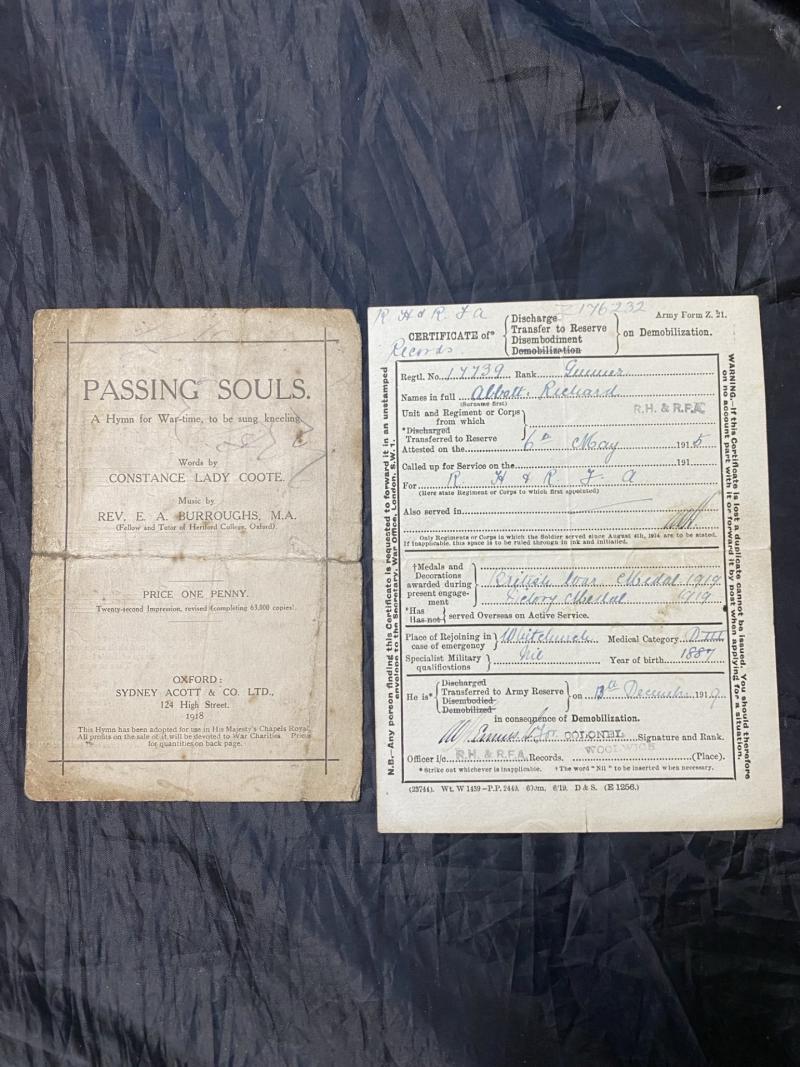 PASSING SOULS.
A Hymn for War-time, to be sung kneeling.
Words by
CONSTANCE LADY COOTE.
Music by
REV. E. A. BURROUGHS, M.A.
(Fellow and Tutor of Hertford College, Oxford).
PRICE ONE PENNY.
Twenty-second Impression, revised (completing 63,000 copies)
OXFORD:
SYDNEY ACOTT & CO. LTD.,
124 High Street.
1918
This Hymn has been adopted for use in His Majesty's Chapels Royal.
All profits on the sale of it will be devoted to War Charities. Prices
for quantities on back page.
R H & R. F A
Records
176232
Army Form Z. 21.
CERTIFICATE of*
Discharge
Transfer to Reserve
Disembodiment
Demobilization
on Demobilization.
Regtl. No. 17739 Rank Gunner
Names in full Abbott. Richard
(Surname first)
Unit and Regiment or Corps
from which
R.H. & R.F.A.
*Discharged
Transferred to Reserve
Attested on the 6th May 1915
Called up for Service on the 191
For R H & R F A
(Here state Regiment or Corps to which first appointed)
Also served in
Only Regiments or Corps in which the Soldier served since August 4th, 1914 are to be stated.
If inapplicable, this space is to be ruled through in ink and initialled.
†Medals and
Decorations
awarded during
present engagement
British War Medal 1919
Victory Medal 1919
*Has
Has not
served Overseas on Active Service.
Place of Rejoining in
case of emergency
Whitchurch Medical Category B III
Specialist Military
qualifications
Nil Year of birth 1887
He is*
Discharged
Transferred to Army Reserve
Disembodied
Demobilized
on December 1919
in consequence of Demobilization.
for COLONEL Signature and Rank.
Officer i/c R.H. & R.F.A. Records. WOOLWICH (Place).
* Strike out whichever is inapplicable. † The word "Nil" to be inserted when necessary.
(23744). Wt. W 1459-P.P. 2449. 6/19. D & S. (E 1256.)
N.B.-Any person finding this Certificate is requested to forward it in an unstamped
envelope to the Secretary, War Office, London, S.W. 1.
WARNING.-If this Certificate is lost a duplicate cannot be issued. You should therefore
on no account part with it or forward it by post when applying for a situation.